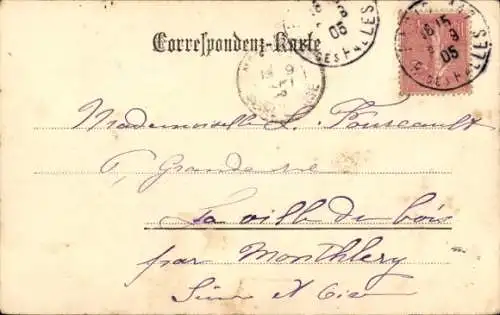 Correspondenz-Karte
16 15
9
05
DES HALLES
Mademoiselle L. Foucault
7, Grande rue
La ville du bois
par Monthléry
Seine et Oise